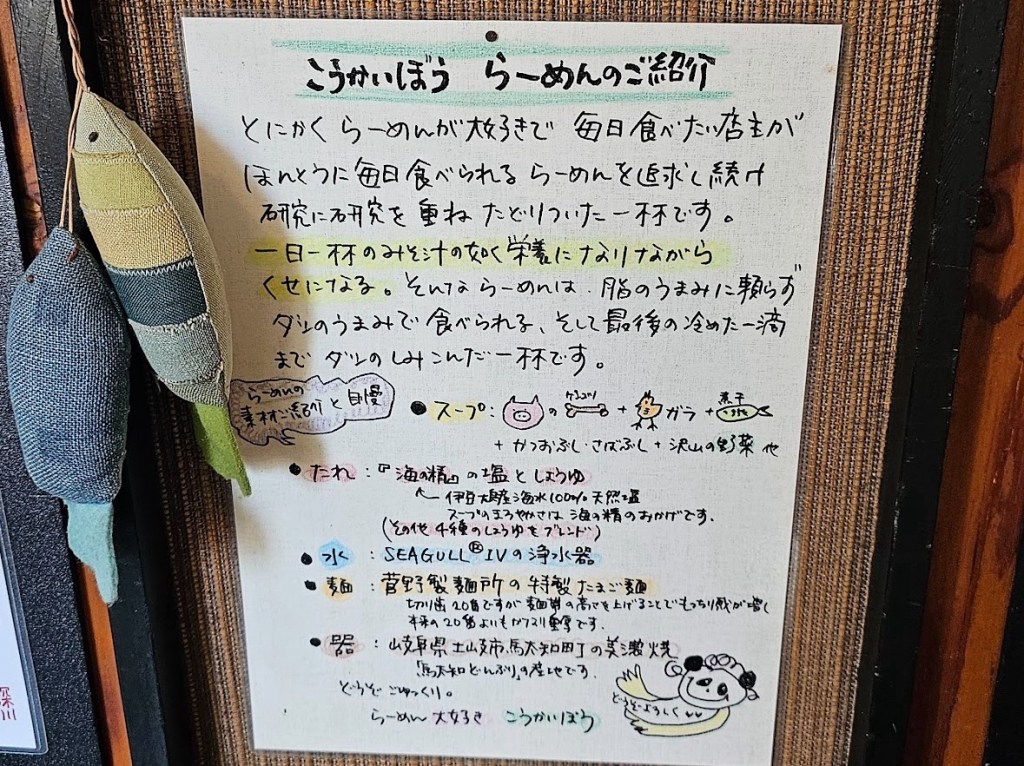 こうかいぼう らーめんのご紹介
とにかくらーめんが大好きで 毎日食べたい店主が
ほんとうに毎日食べられる らーめんを追求し続け
研究に研究を重ね たどりついた一杯です。
一日一杯のみそ汁の如く栄養になりながら
くせになる。そんならーめんは 脂のうまみに頼らず
ダシのうまみで食べられる、そして最後の冷めた一滴
まで ダシのしみこんだ一杯です。
らーめんの
素材ご紹介と自慢
●スープ: の ゲンコツ + ガラ + 煮干
+ かつおぶし・さばぶし + 沢山の野菜 他
●たれ:『海の精』の塩としょうゆ
伊豆大島産海水100%天然塩
スープのまろやかさは 海の精のおかげです。
(その他 4種のしょうゆをブレンド)
●水 : SEAGULL®IVの浄水器
●麺 : 菅野製麺所の特製たまご麺
切り歯20番ですが 麺帯の高さを上げることでもっちり感が増し
本来の20番よりもかなり重厚です。
●器 : 岐阜県土岐市駄知町の美濃焼
「駄知どんぶり」の産地です。
どうぞごゆっくり。
どうぞよろしく
らーめん大好き こうかいぼう